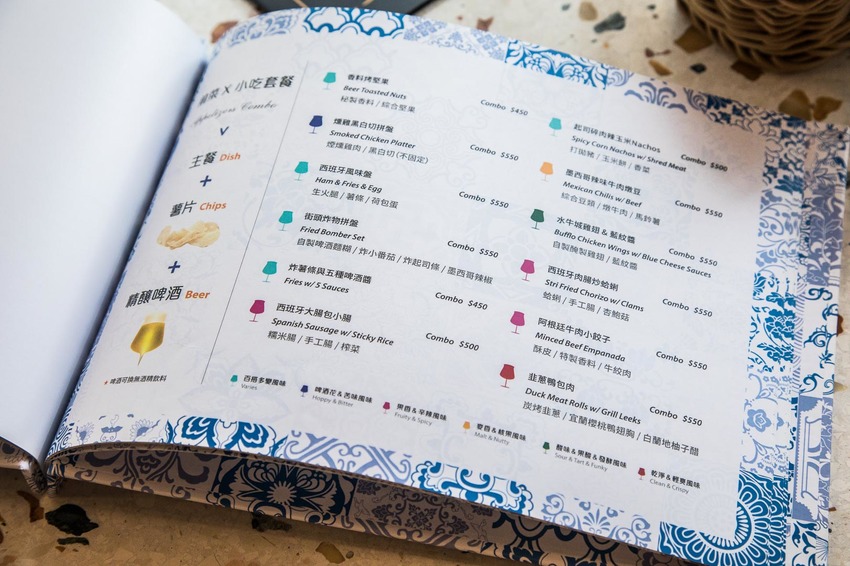 X 小吃套餐
Appetizers Combo
主餐 Dish
+
薯片 Chips
+
精釀啤酒 Beer
+ 啤酒可換無酒精飲料
香料烤堅果
Beer Tousted Nuts Combo $450
秘製香料 / 綜合堅果
燻雞黑白切拼盤
Smoked Chicken Platter Combo $550
煙燻雞肉 / 黑白切(不固定)
西班牙風味盤
Ham & Fries & Egg Combo $550
生火腿 / 薯條 / 荷包蛋
街頭炸物拼盤
Fried Bomber Set Combo $550
自製啤酒麵糊 / 炸小番茄 / 炸起司條 / 墨西哥辣椒
炸薯條與五種啤酒醬
Fries w/ 5 Sauces Combo $450
西班牙大腸包小腸
Spanish Sausage w/ Sticky Rice Combo $500
糯米腸 / 手工腸 / 榨菜
起司碎肉辣玉米Nachos
Spicy Corn Nachos w/ Shred Meat Combo $500
打拋豬 / 玉米餅 / 香菜
墨西哥辣味牛肉燉豆
Mexican Chilis w/ Beef Combo $550
綜合豆類 / 燉牛肉 / 馬鈴薯
水牛城雞翅 & 藍紋醬
Bufflo Chicken Wings w/ Blue Cheese Sauces Combo $550
自製醃製雞翅 / 藍紋醬
西班牙肉腸炒蛤蜊
Stri Fried Chorizo w/ Clams Combo $550
蛤蜊 / 手工腸 / 杏鮑菇
阿根廷牛肉小餃子
Minced Beef Empanada Combo $550
酥皮 / 特製香料 / 牛絞肉
韭蔥鴨包肉
Duck Meat Rolls w/ Grill Leeks Combo $550
炭烤韭蔥 / 宜蘭櫻桃鴨翅胸 / 白蘭地柚子醋
百搭多變風味
Varies
啤酒花 & 苦味風味
Hoppy & Bitter
果香 & 辛辣風味
Fruity & Spicy
麥香 & 核果風味
Malt & Nutty
酸味 & 果酸 & 發酵風味
Sour & Tart & Funky
乾淨 & 輕爽風味
Clean & Crispy